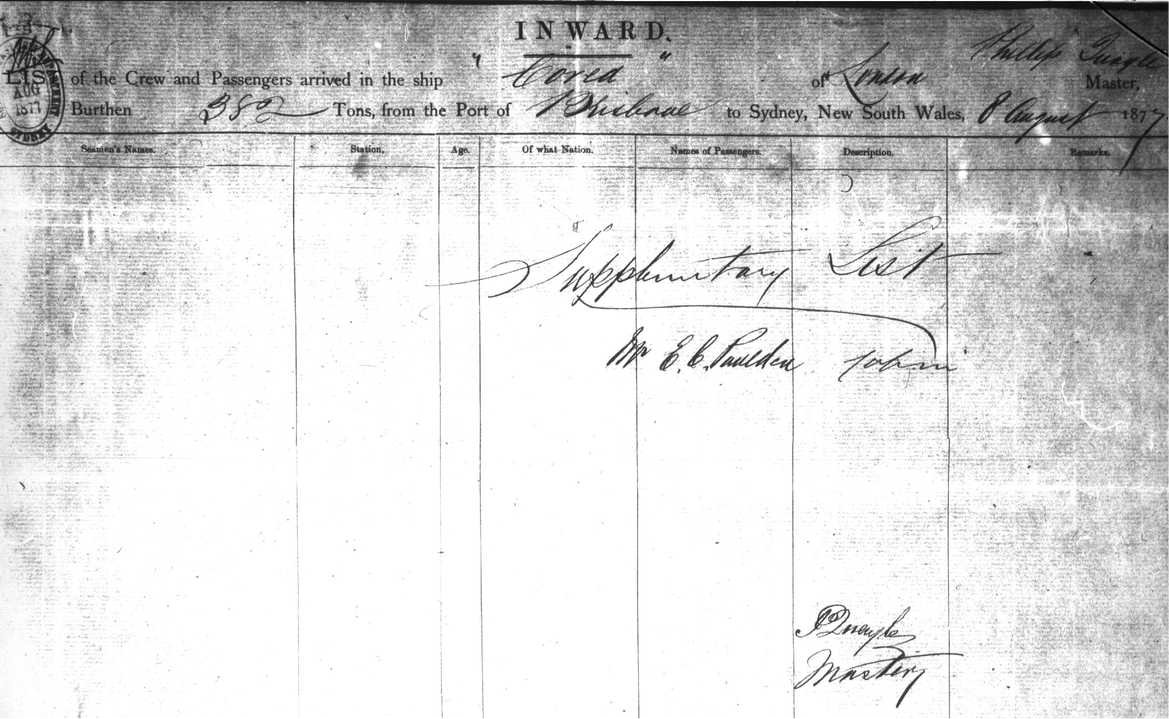 INWARD.
LIST of the Crew and Passengers arrived in the ship " Corea " of London Phillip Quayle Master,
AUG
1877
SYDNEY
Burthen 382 Tons, from the Port of Brisbane to Sydney, New South Wales, 8 August 1877
Seamen's Names. Station. Age. Of what Nation. Names of Passengers. Description. Remarks.
Supplimentary List
Mr E. C. Paulden
PQuayle
Master